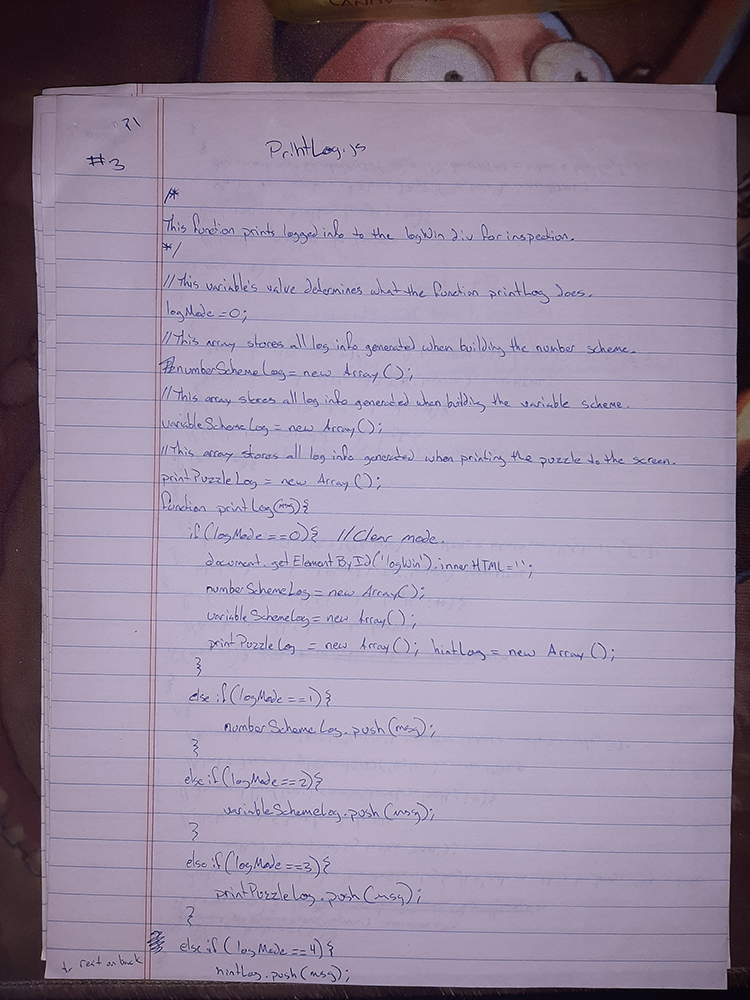 21
#3
PrintLog.js
/*
This function prints logged info to the logWin div for inspection.
*/
//This variable's value determines what the function printLog does.
logMode=0;
//This array stores all log info generated when building the number scheme.
numberSchemeLog = new Array();
//This array stores all log info generated when building the variable scheme.
variableSchemeLog = new Array();
//This array stores all log info generated when printing the puzzle to the screen.
printPuzzleLog = new Array();
function printLog(msg){
if(logMode==0){ //Clear mode.
document.getElementById('logWin').innerHTML='';
numberSchemeLog = new Array();
variableSchemeLog = new Array();
printPuzzleLog = new Array(); hintLog = new Array();
}
else if(logMode==1){
numberSchemeLog.push(msg);
}
else if(logMode==2){
variableSchemeLog.push(msg);
}
else if(logMode==3){
printPuzzleLog.push(msg);
}
else if(logMode==4){
↓ rest on back
hintLog.push(msg);